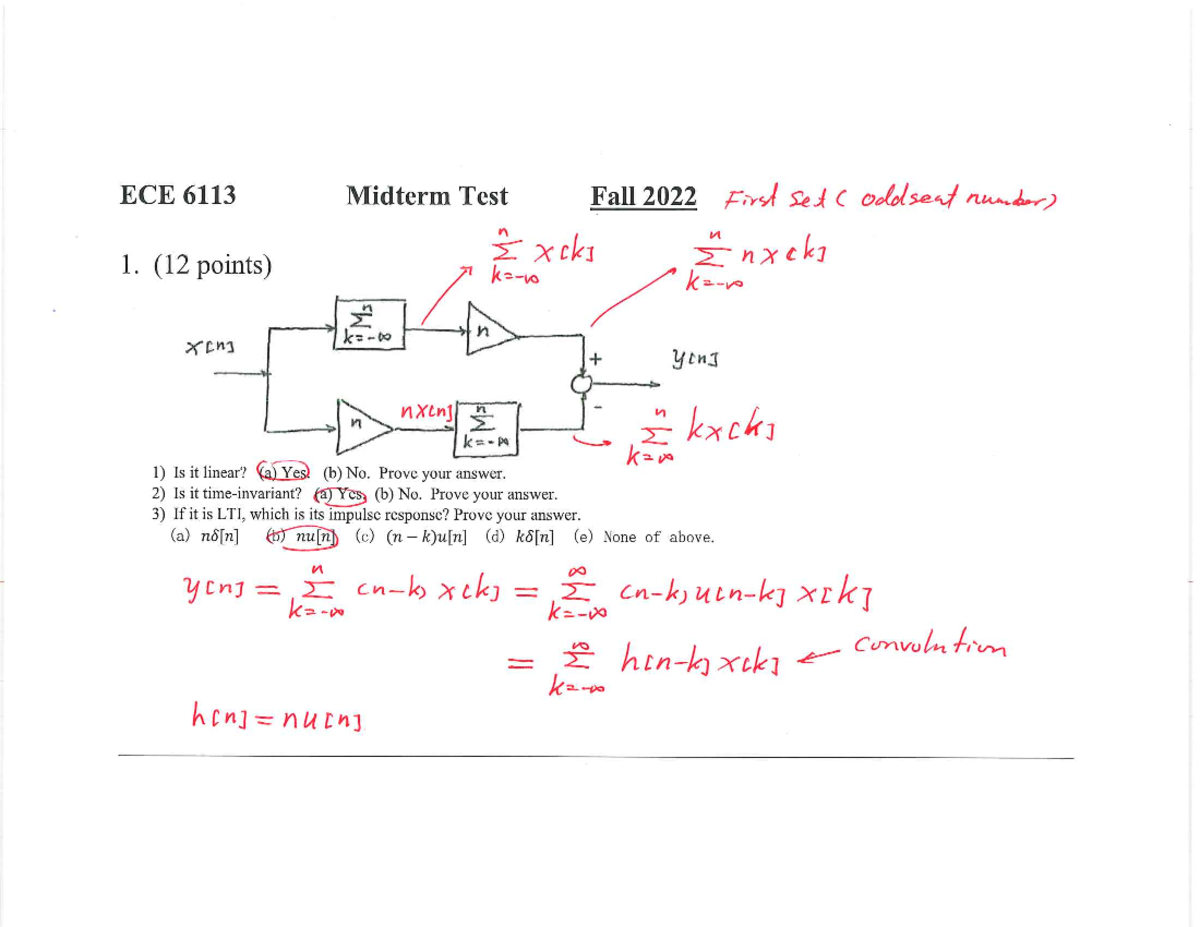 ECE 6113 Midterm Test Fall 2022 First Set ( odd seat number)
1. (12 points)
n
Σ x[k]
k=-∞
n
Σ nx[k]
k=-∞
n
Σ
k=-∞
n
x[n]
+
y[n]
n
nx[n]
n
Σ
k=-∞
-
n
Σ kx[k]
k=∞
1) Is it linear? (a) Yes (b) No. Prove your answer.
2) Is it time-invariant? (a) Yes, (b) No. Prove your answer.
3) If it is LTI, which is its impulse response? Prove your answer.
(a) nδ[n] (b) nu[n] (c) (n − k)u[n] (d) kδ[n] (e) None of above.
y[n] = Σ_{k=-∞}^{n} (n-k) x[k] = Σ_{k=-∞}^{∞} (n-k) u[n-k] x[k]
= Σ_{k=-∞}^{∞} h[n-k] x[k] ← convolution
h[n] = nu[n]